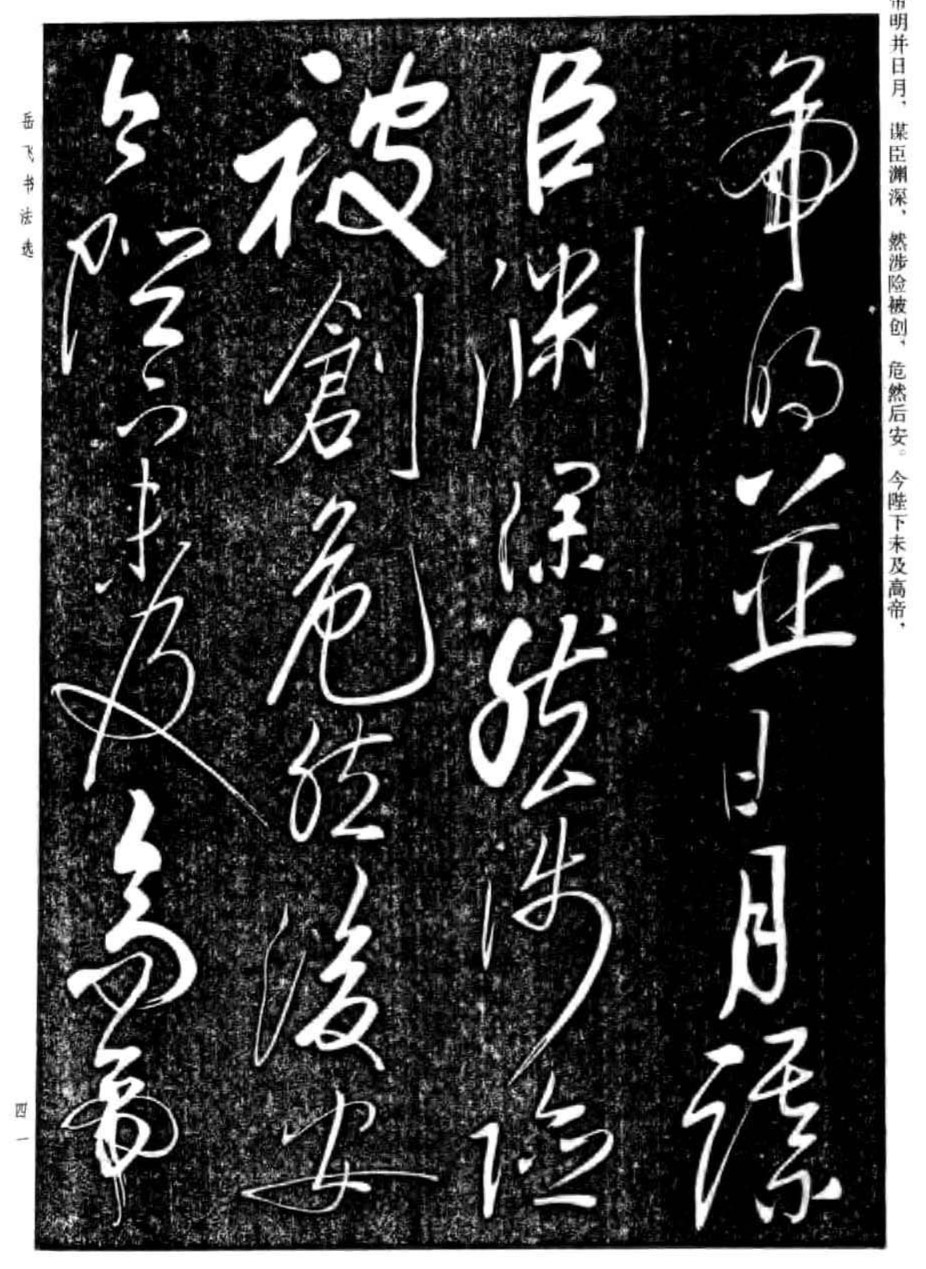 帝明并日月，谋臣渊深，然涉险被创，危然后安。今陛下未及高帝，
帝明並日月謀
臣渊深然涉险
被創危然後安
今陛下未及高帝
岳飞书法选
四一